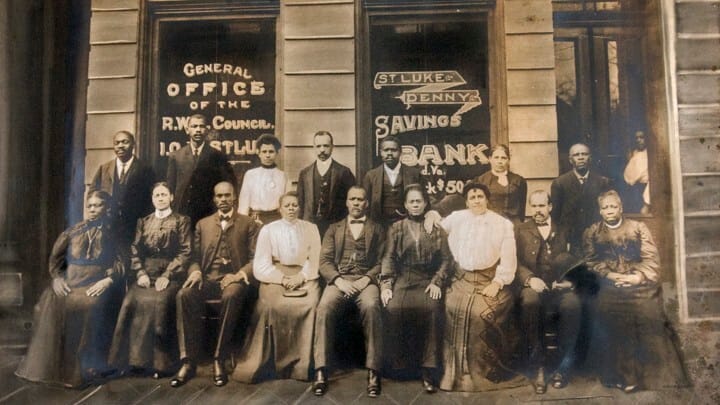 GENERAL
OFFICE
OF THE
R.W.G. COUNCIL.
I.O. ST. LU
ST LUKE
PENNY
SAVINGS
BANK
d. Va.
ck $50